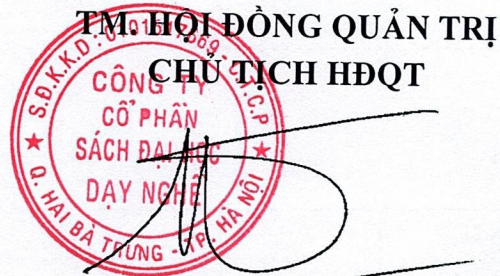 TM. HỘI ĐỒNG QUẢN TRỊ
CHỦ TỊCH HĐQT
CÔNG TY
CỔ PHẦN
SÁCH ĐẠI HỌC
DẠY NGHỀ
Q. HAI BÀ TRƯNG - TP. HÀ NỘI